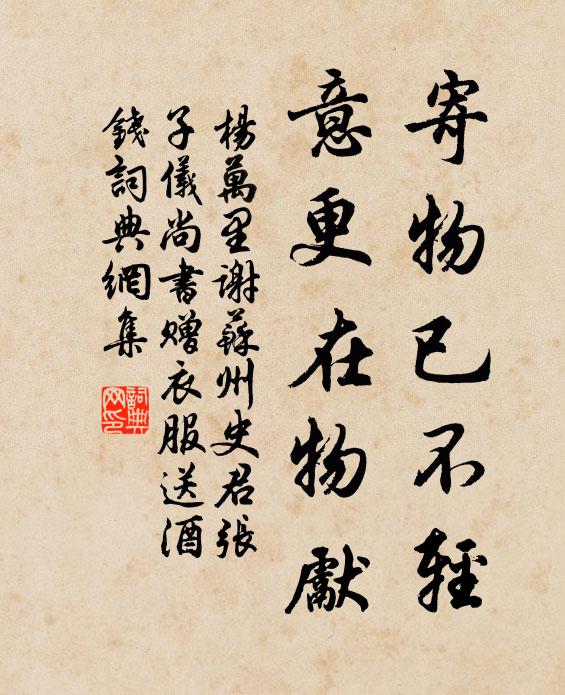 寄物已不輕
意更在物獻
楊萬里謝蘇州史君張
子儀尚書贈衣服送酒
錢詞典網集
詞典
网印